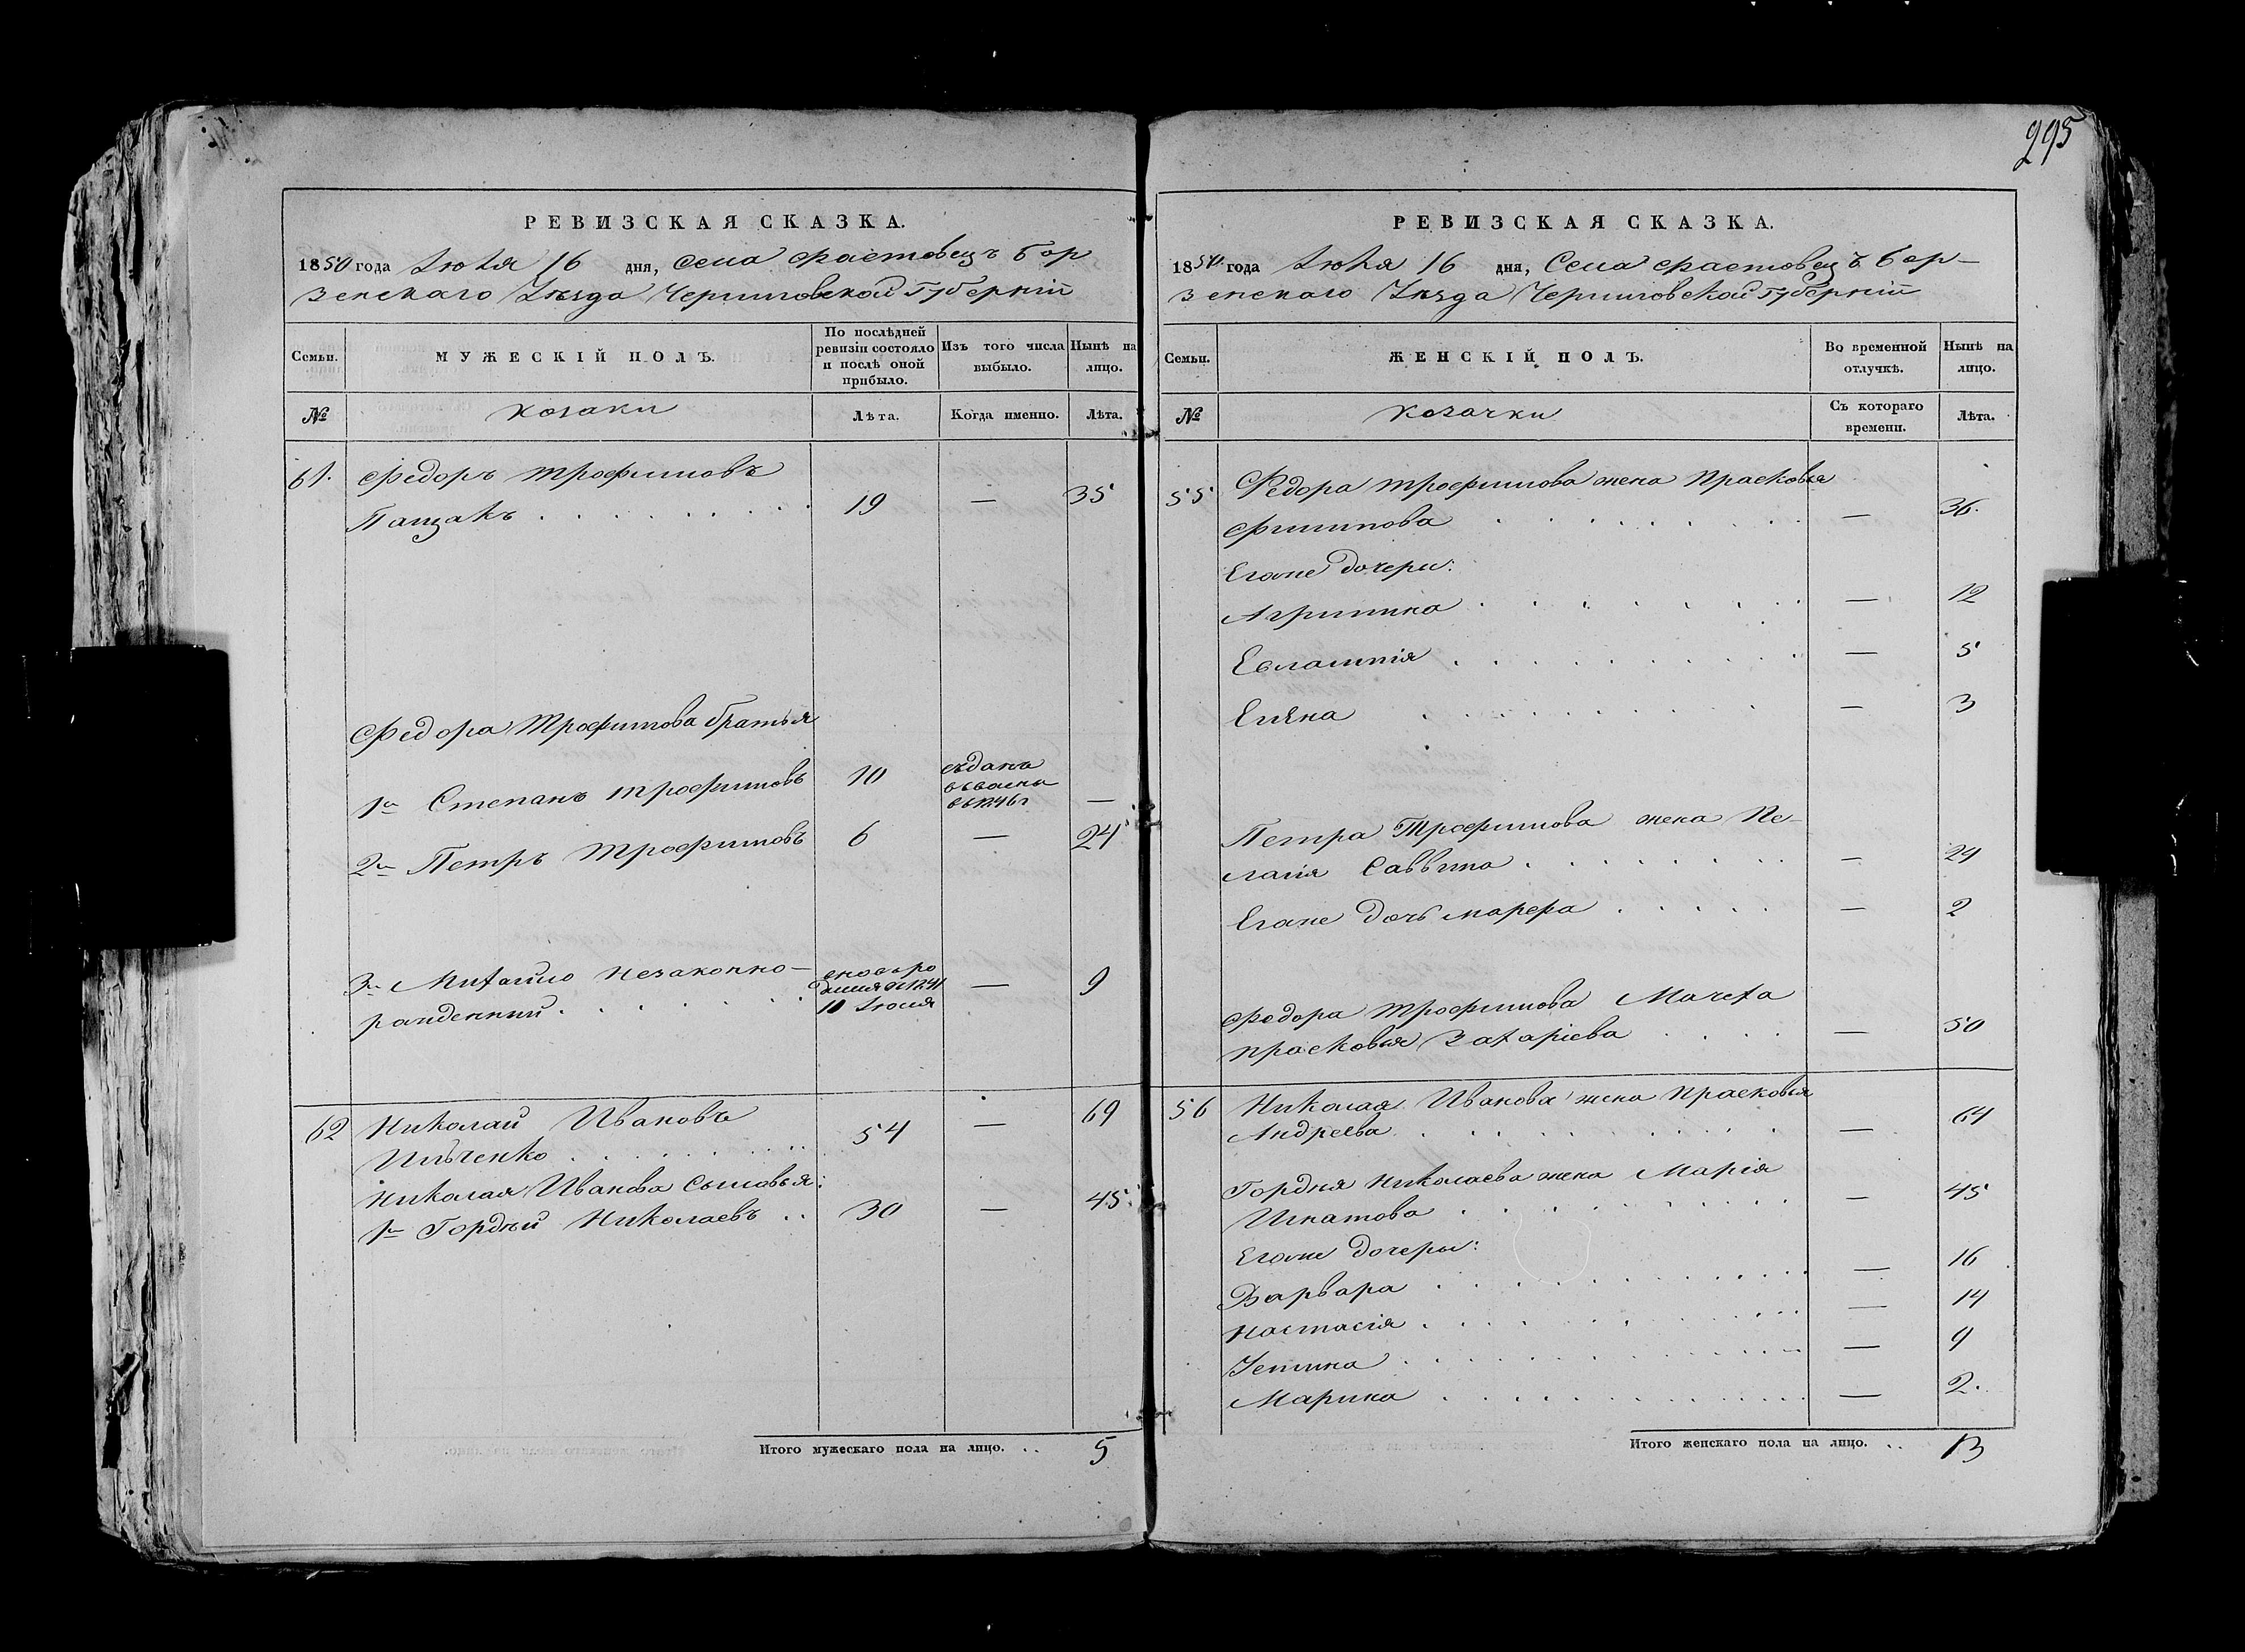 295
РЕВИЗСКАЯ СКАЗКА.
1850 года Іюля 16 дня, Села Фастовецъ Бор
зенскаго Уѣзда Черниговской Губерніи
Семьи.
МУЖЕСКІЙ ПОЛЪ.
По послѣдней ревизіи состояло и послѣ оной прибыло.
Изъ того числа выбыло.
Нынѣ на лицо.
№
козаки
Лѣта.
Когда именно.
Лѣта.
61. Федоръ Трофимовъ
Пащакъ . . . . . . . . . 19 — 35
Федора Трофимова братья
1й Степанъ Трофимовъ 10 —
2й Петръ Трофимовъ 6 — 24
3й Михайло незаконно-
рожденный . . . . . . . — 9
10 Іюля
62 Николай Ивановъ
Ильченко . . . . . . . . . 54 — 69
Николая Иванова сыновья:
1й Гордѣй Николаевъ . . 30 — 45
Итого мужескаго пола на лицо. . . 5
РЕВИЗСКАЯ СКАЗКА.
1850 года Іюля 16 дня, Села Фастовецъ Бор-
зенскаго Уѣзда Черниговской Губерніи
Семьи.
ЖЕНСКІЙ ПОЛЪ.
Во временной отлучкѣ.
Нынѣ на лицо.
№
козачки
Съ котораго времени.
Лѣта.
55 Федора Трофимова жена Прасковья
Филипова . . . . . . . . . — 36.
Егоже дочери:
Агрипина . . . . . . . . — 12
Евлампія . . . . . . . . . — 5
Елена . . . . . . . . . — 3
Петра Трофимова жена Пе-
лагія Саввина . . . . . . . . — 24
Егоже дочь Марфа . . . . . — 2
Федора Трофимова Мачеха
Прасковья Захаріева . . . . — 50
56 Николая Иванова жена Прасковья
Андреева . . . . . . . . . — 64
Гордѣя Николаева жена Марія
Игнатова . . . . . . . . . — 45
Егоже дочери:
Варвара . . . . . . . . . . — 16
Настасія . . . . . . . . . — 14
Устина . . . . . . . . . . — 9
Марина . . . . . . . . . . — 2.
Итого женскаго пола на лицо. . . 13